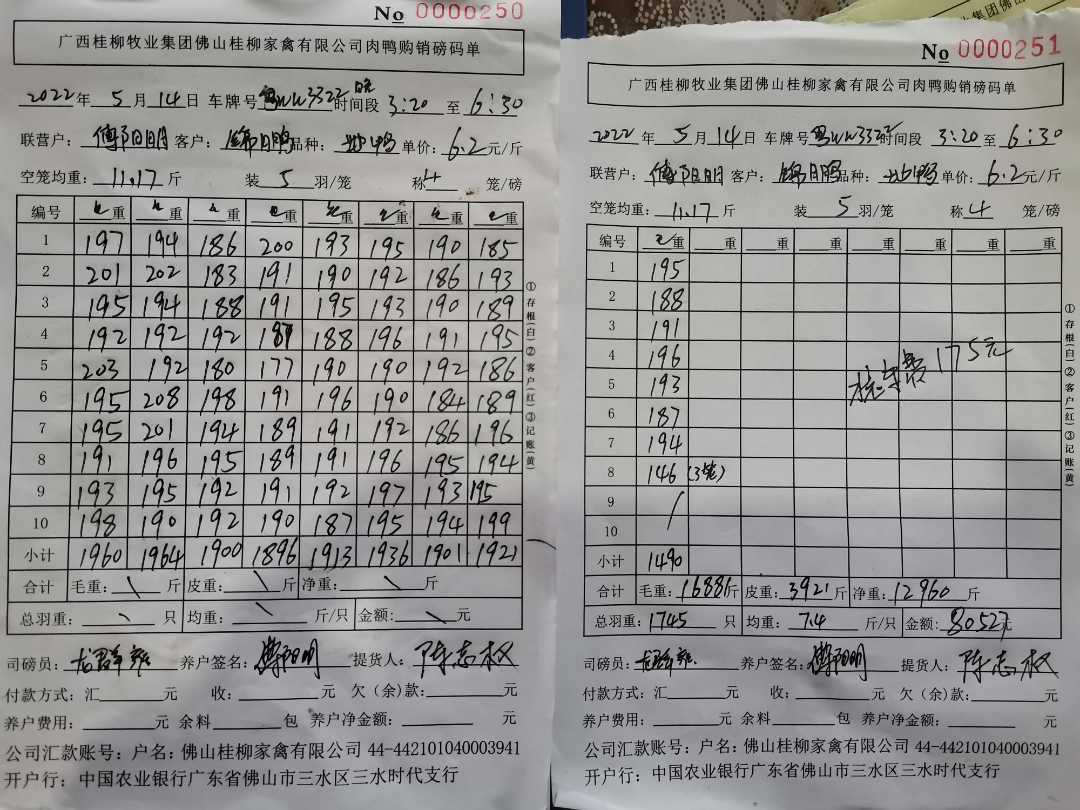 No 0000250
广西桂柳牧业集团佛山桂柳家禽有限公司肉鸭购销磅码单
2022年 5月14日 车牌号 粤WW3322 时间段 3:20 至 6:30
联营户: 傅阳明 客户: 锦日鸭 品种: 单价: 6.2元/斤
空笼均重: 11.17 斤 装 5 羽/笼 称 4 笼/磅
编号 重 重 重 重 重 重 重 重
1 197 194 186 200 193 195 190 185
2 201 202 183 191 190 192 186 193
3 195 194 188 191 195 193 190 189
4 192 192 192 188 196 191 195
5 203 192 180 177 190 190 192 186
6 195 208 198 191 196 190 184 189
7 195 201 194 189 191 192 186 196
8 191 196 195 189 191 196 195 194
9 193 195 192 191 192 197 193 195
10 198 190 192 190 187 195 194 199
小计 1960 1964 1900 1896 1913 1936 1901 1921
合计 毛重: 斤 皮重: 斤 净重: 斤
总羽重: 只 均重: 斤/只 金额: 元
司磅员: 养户签名: 傅阳明 提货人: 陈志权
付款方式: 汇 元 收: 元 欠(余)款: 元
养户费用: 元 余料 包 养户净金额: 元
公司汇款账号: 户名: 佛山桂柳家禽有限公司 44-442101040003941
开户行: 中国农业银行广东省佛山市三水区三水时代支行
①存根(白)②客户(红)③记账(黄)
No 0000251
广西桂柳牧业集团佛山桂柳家禽有限公司肉鸭购销磅码单
2022年 5月14日 车牌号 粤WW3322 时间段 3:20 至 6:30
联营户: 傅阳明 客户: 锦日鸭 品种: 单价: 6.2元/斤
空笼均重: 11.17 斤 装 5 羽/笼 称 4 笼/磅
编号 重 重 重 重 重 重 重 重
1 195
2 188
3 191
4 196
5 193
6 187
7 194
8 146 (3笼)
9
10
175元
小计 1490
合计 毛重: 16881斤 皮重: 3921斤 净重: 12960斤
总羽重: 1745只 均重: 7.4斤/只 金额: 80527元
司磅员: 养户签名: 傅阳明 提货人: 陈志权
付款方式: 汇 元 收: 元 欠(余)款: 元
养户费用: 元 余料 包 养户净金额: 元
公司汇款账号: 户名: 佛山桂柳家禽有限公司 44-442101040003941
开户行: 中国农业银行广东省佛山市三水区三水时代支行
①存根(白)②客户(红)③记账(黄)